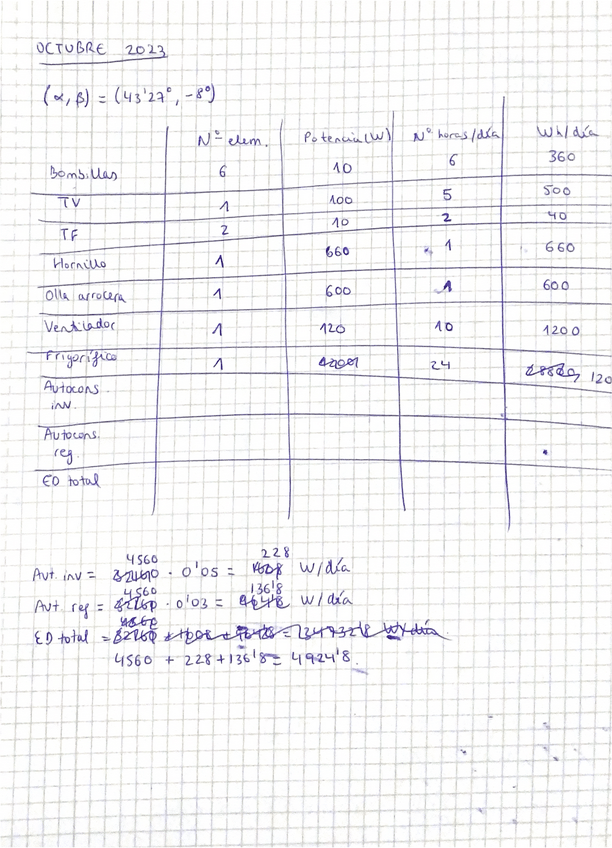 OCTUBRE 2023
(α, β) = (43'27°, -8°)
Nº elem. Potencia (W) Nº horas/día Wh/día
Bombillas 6 10 6 360
TV 1 100 5 500
TF 2 10 2 40
Hornillo 1 660 1 660
Olla arrocera 1 600 1 600
Ventilador 1 120 10 1200
Frigorífico 1 24 120
Autocons.
inv.
Autocons.
reg.
ED total
4560 228
Aut. inv = · 0'05 = W/día
4560 136'8
Aut. reg = · 0'03 = W/día
4560
ED total =
4560 + 228 + 136'8 = 4924'8.